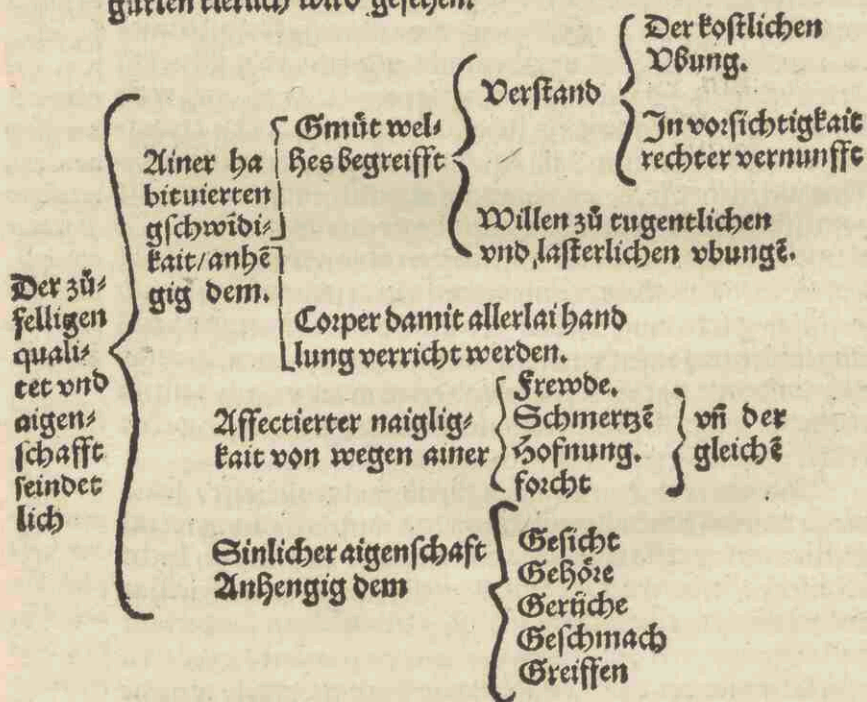 gurien tierlich wird gesehen.
Der zů⸗
felligen
quali⸗
tet vnd
aigen⸗
schafft
seindet
lich
Ainer ha
bituierten
gschwīdi⸗
kait/anhē
gig dem.
Gmůt wel⸗
hes begreifft
Verstand
Der kostlichen
Vbung.
In vorsichtigkait
rechter vernunfft
Willen zů tugentlichen
vnd lasterlichen vbungē.
Corper damit allerlai hand
lung verricht werden.
Affectierter naiglig⸗
kait von wegen ainer
Frewde.
Schmertzē
Hofnung.
forcht
vñ der
gleichē
Sinlicher aigenschaft
Anhengig dem
Gesicht
Gehöre
Gerüche
Geschmach
Greiffen